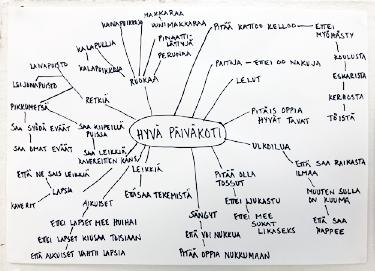 HYVÄ PÄIVÄKOTI
MAKKARAA
UUNIMAKKARAA
KANAPOIKKOJA
PINAATTI-
LÄTTYJÄ
PERUNAA
KALAPULLIA
KALAPUIKKOJA
RUOKAA
PITÄÄ KATTOO KELLOO
ETTEI
MYÖHÄSTY
KOULUSTA
ESKARISTA
KERHOSTA
TÖISTÄ
PAITOJA – ETTEI OO NAKUJA
LELUT
PITÄIS OPPIA
HYVÄT TAVAT
ULKOILUA
ETTÄ SAA RAIKASTA
ILMAA
MUUTEN SULLA
ON KUUMA
ETTÄ SAA
HAPPEE
PITÄÄ OLLA
TOSSUT
ETTEI LIUKASTU
ETTEI MEE
SUKAT
LIKASEKS
SÄNGYT
ETTÄ VOI NUKKUA
PITÄÄ OPPIA NUKKUMAAN
LEIKKIÄ
ETÄSAA TEKEMISTÄ
AIKUISET
ETTEI LAPSET MEE HUIHAI
ETTEI LAPSET KIUSAA TOISIAAN
ETTÄ AIKUISET VAHTII LAPSIA
LAPSIA
KAVERIT
ETTÄ ME SAIS LEIKKIÄ
RETKIÄ
LAIVAPUISTO
LEIJONAPUISTO
PIKKUMETSÄ
SAA SYÖDÄ EVÄÄT
SAA OMAT EVÄÄT
SAA KIIPEILLÄ
PUISSA
SAA LEIKKIÄ
KAVEREITTEN KANS